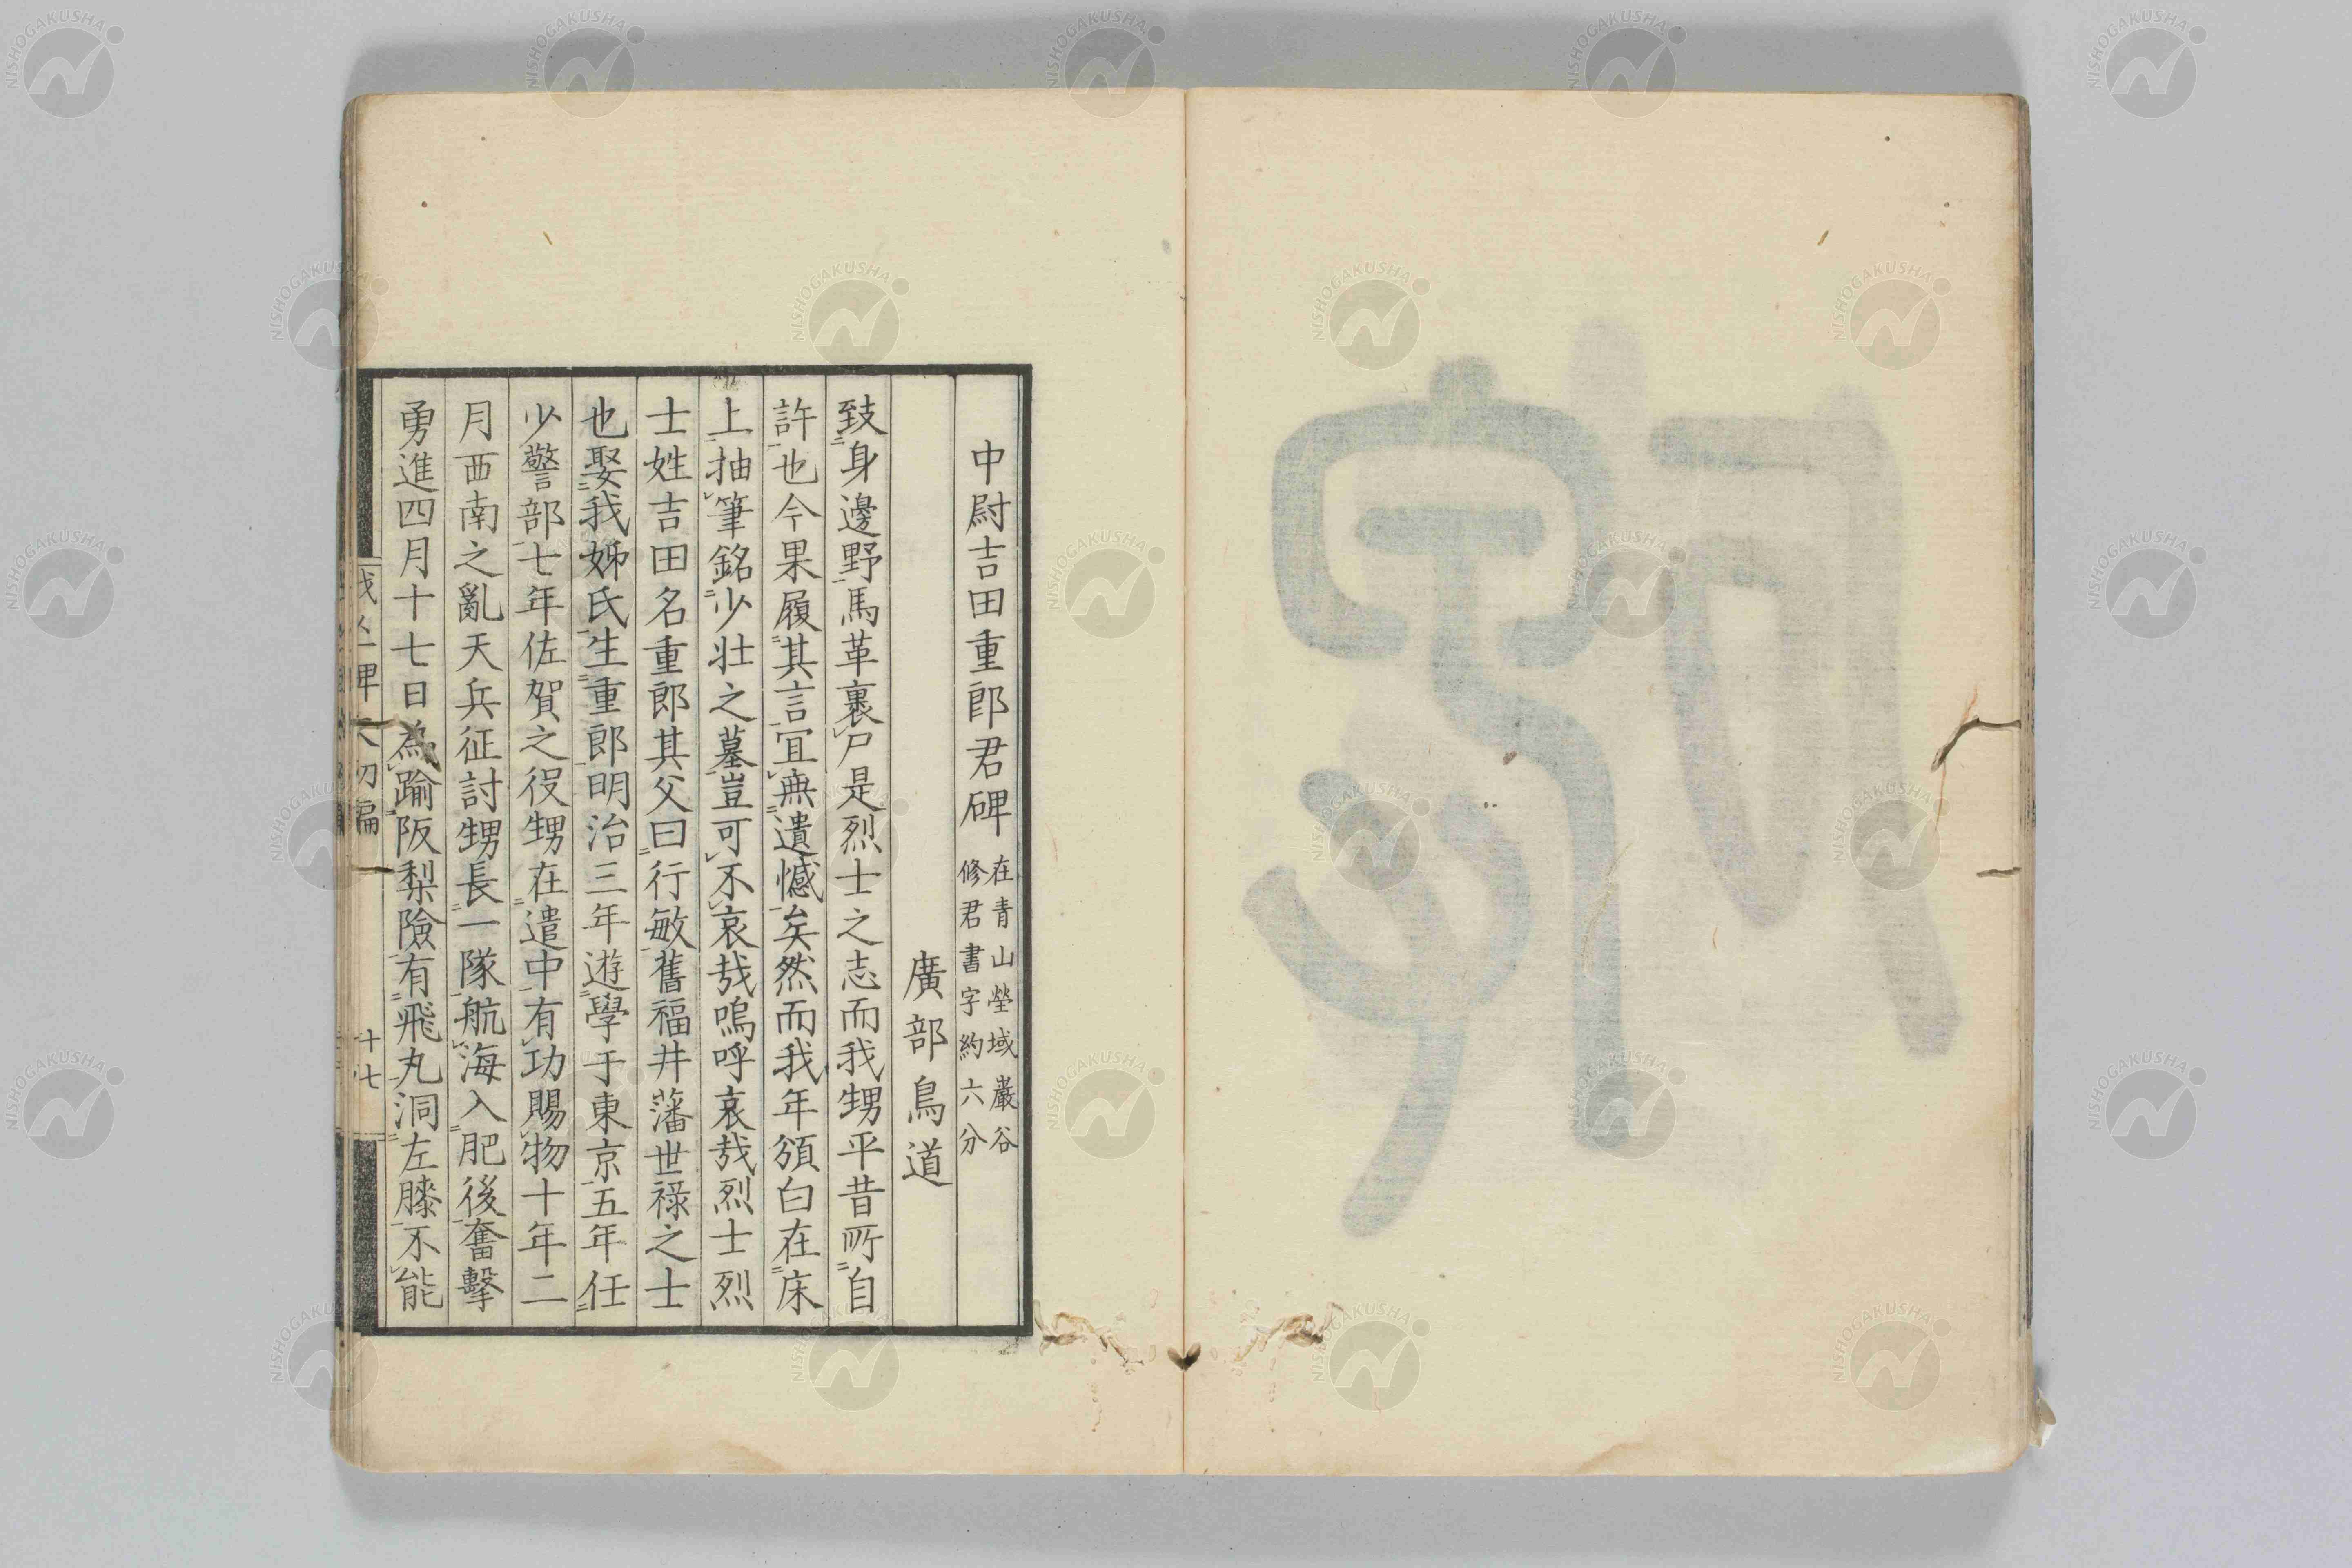 中尉吉田重郎君碑 在青山塋域巖谷修君書字約六分
廣部鳥道
致身邊野馬革裹尸是烈士之志而我甥平昔所自
許也今果履其言宜無遺憾矣然而我年頒白在床
上抽筆銘少壯之墓豈可不哀哉嗚呼哀哉烈士烈
士姓吉田名重郎其父曰行敏舊福井藩世祿之士
也娶我姊氏生重郎明治三年遊學于東京五年任
少警部七年佐賀之役甥在遣中有功賜物十年二
月西南之亂天兵征討甥長一隊航海入肥後奮擊
勇進四月十七日為踰阪梨險有飛丸洞左膝不能
十七
NISHOGAKUSHA